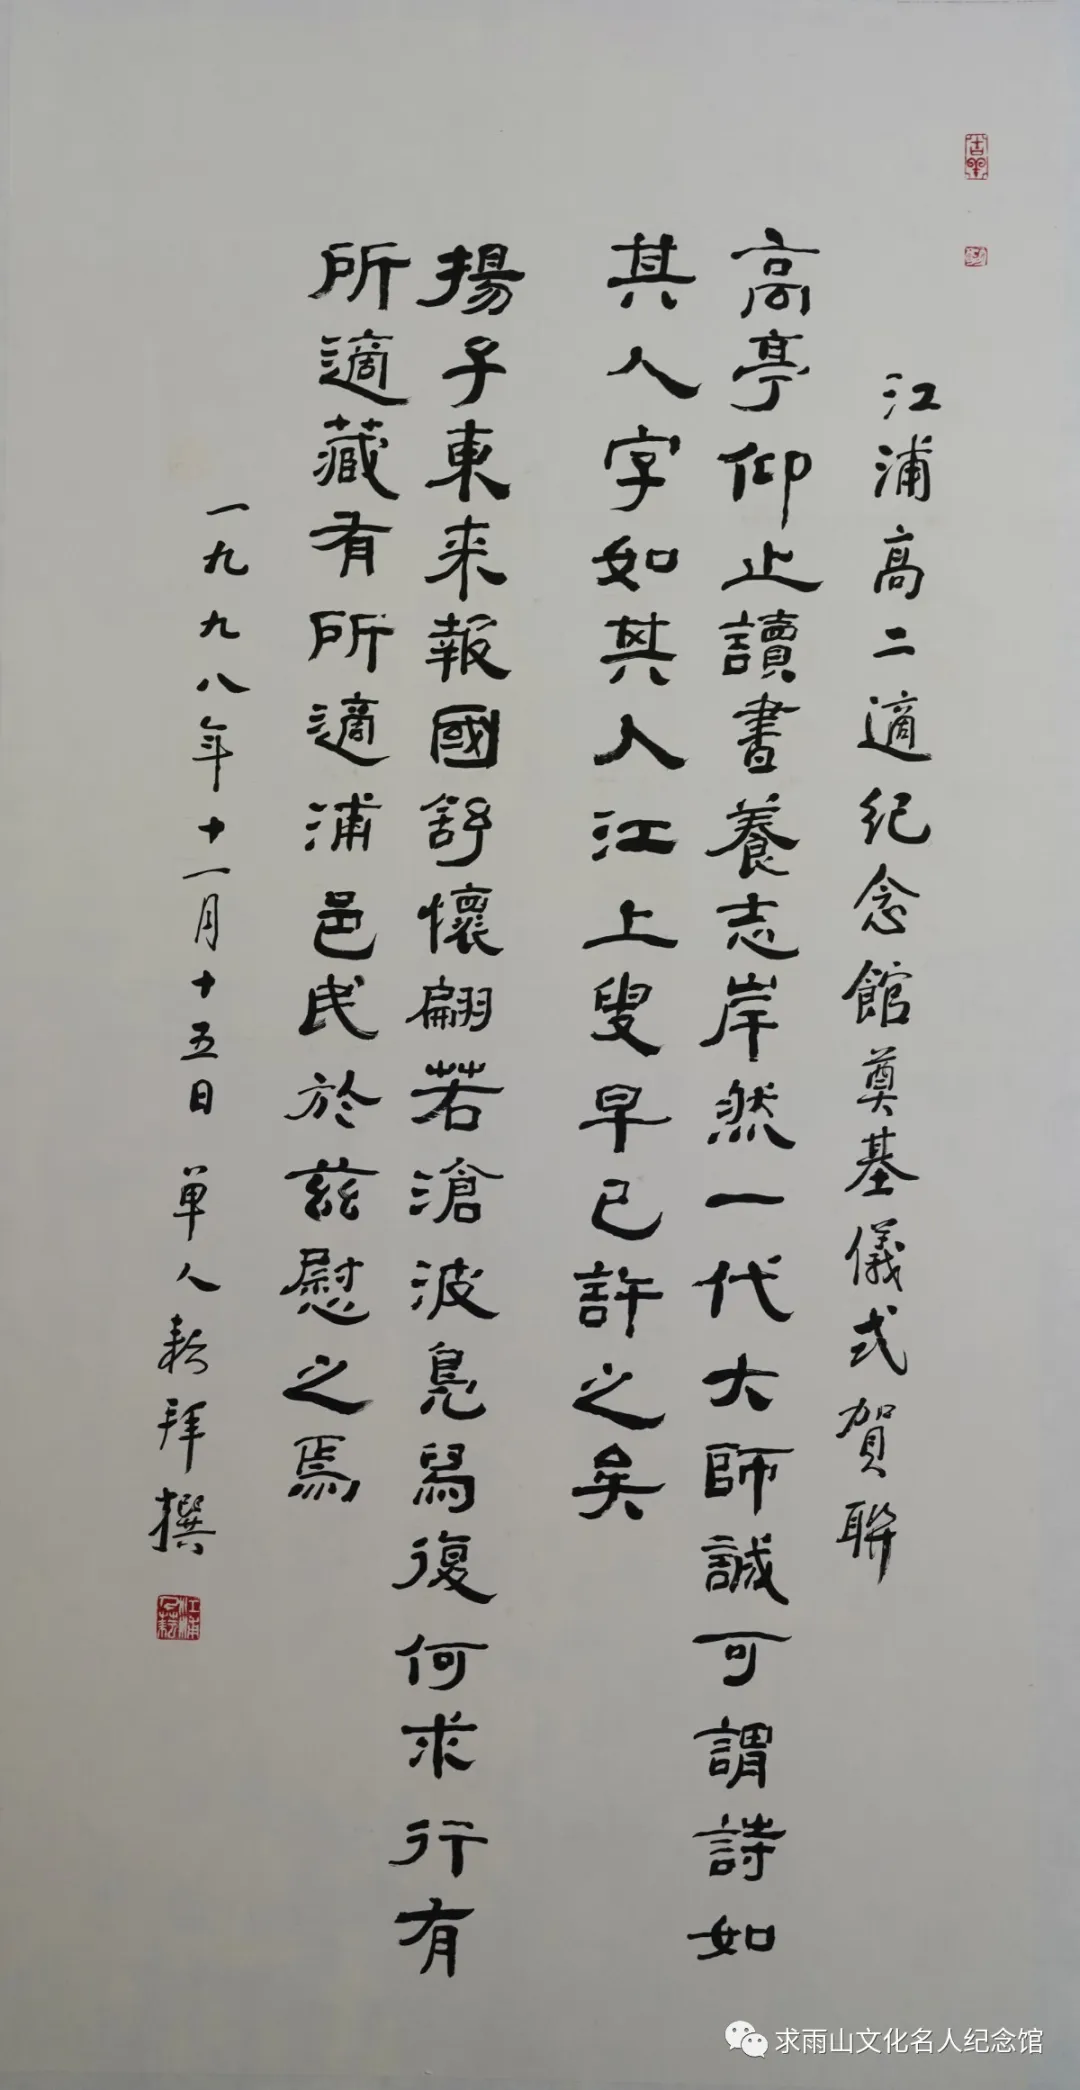 江浦高二適纪念館奠基儀式賀聯
高亭仰止讀書養志岸然一代大師誠可謂詩如
其人字如其人江上叟早已許之矣
揚子東来報國舒懷翩若滄波鳧舄復何求行有
所適藏有所適浦邑民於兹慰之焉
一九九八年十一月十五日 單人耘拜撰
求雨山文化名人纪念馆